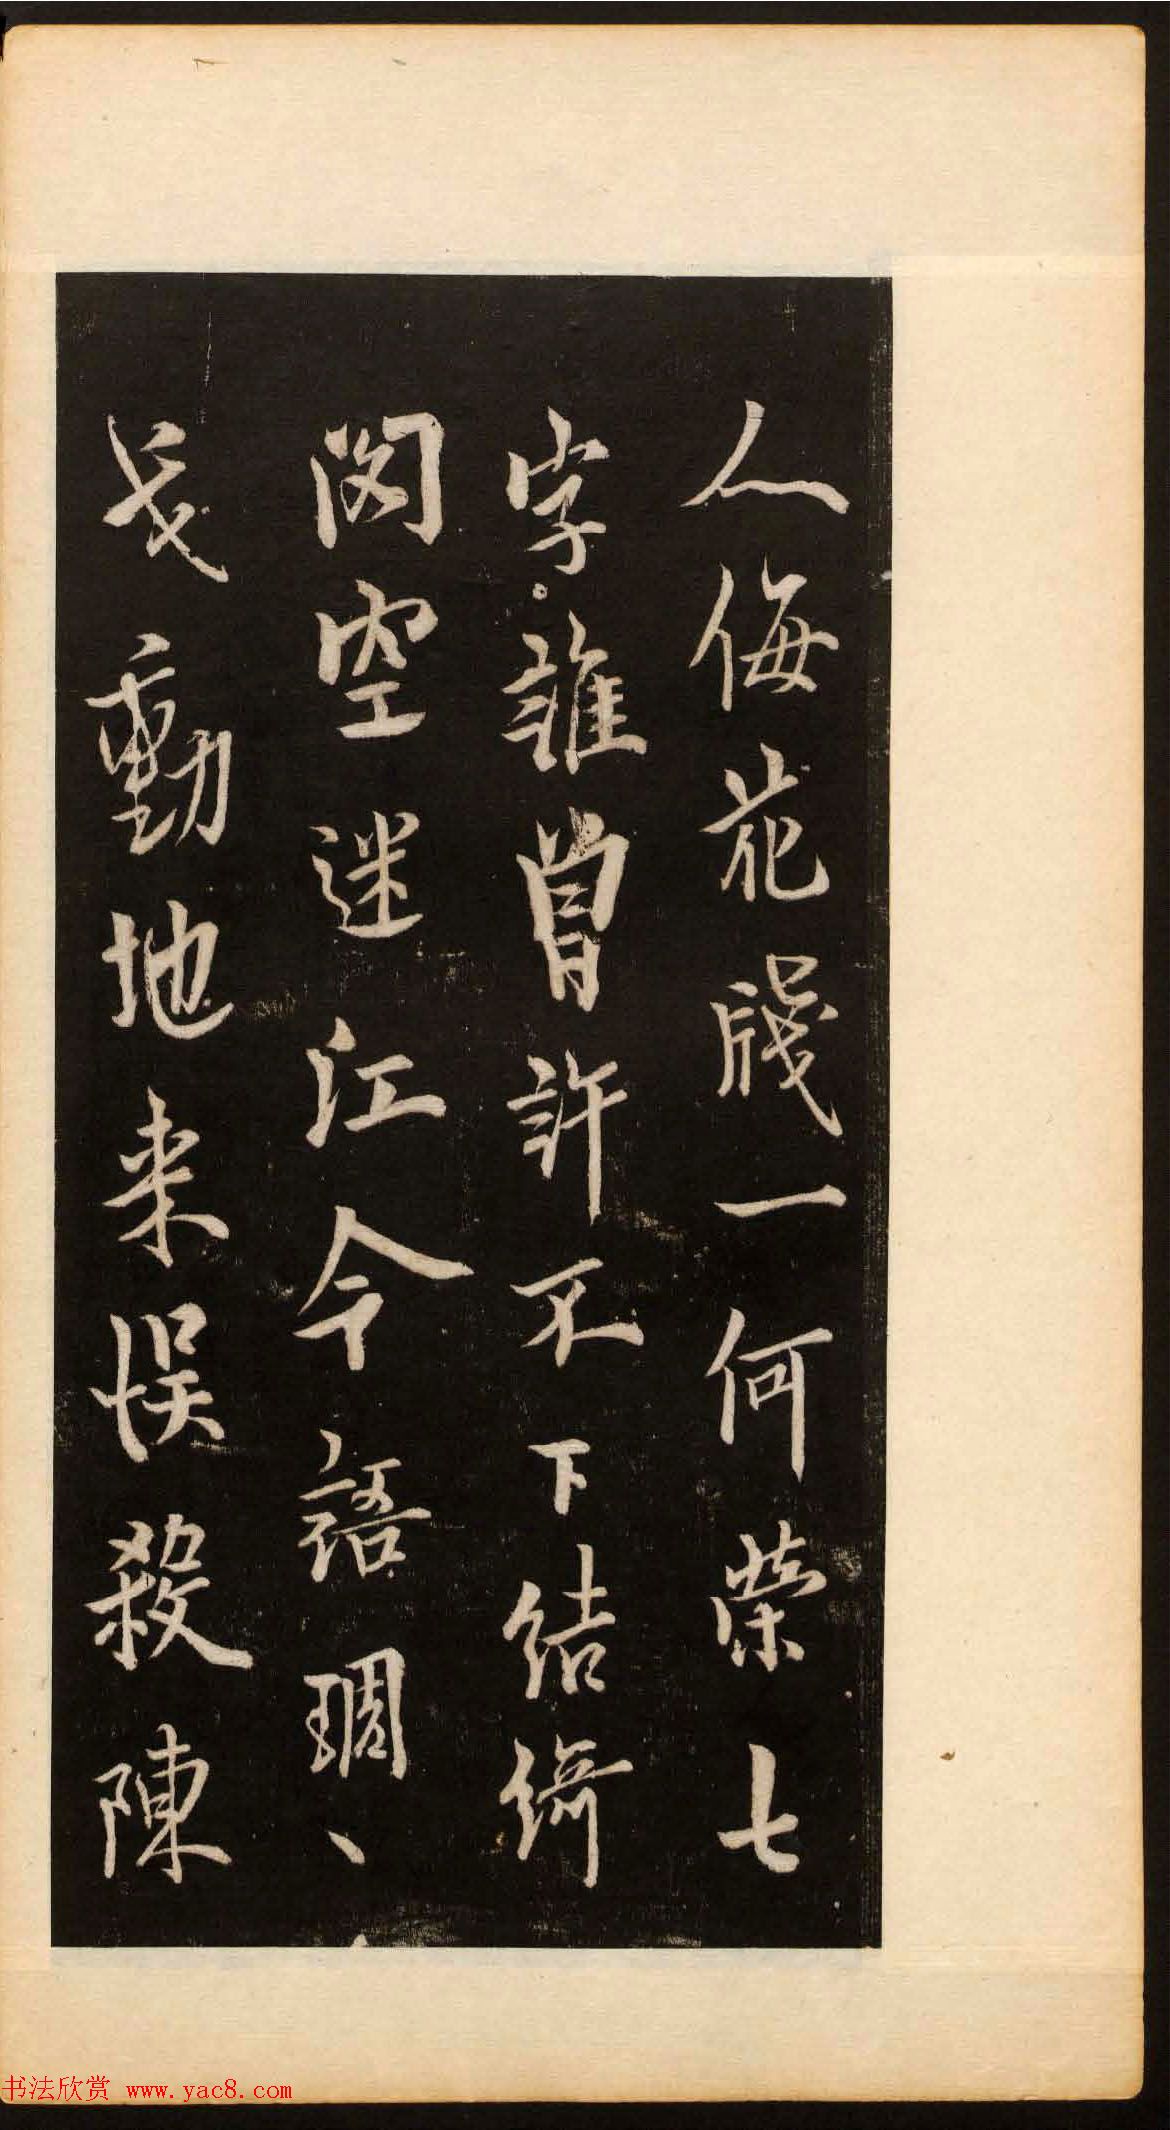 人侮花牋一何榮七
字誰曾許不下結綺
閣空迷江令語琱〻
戈動地来悮殺陳
书法欣赏 www.yac8.com